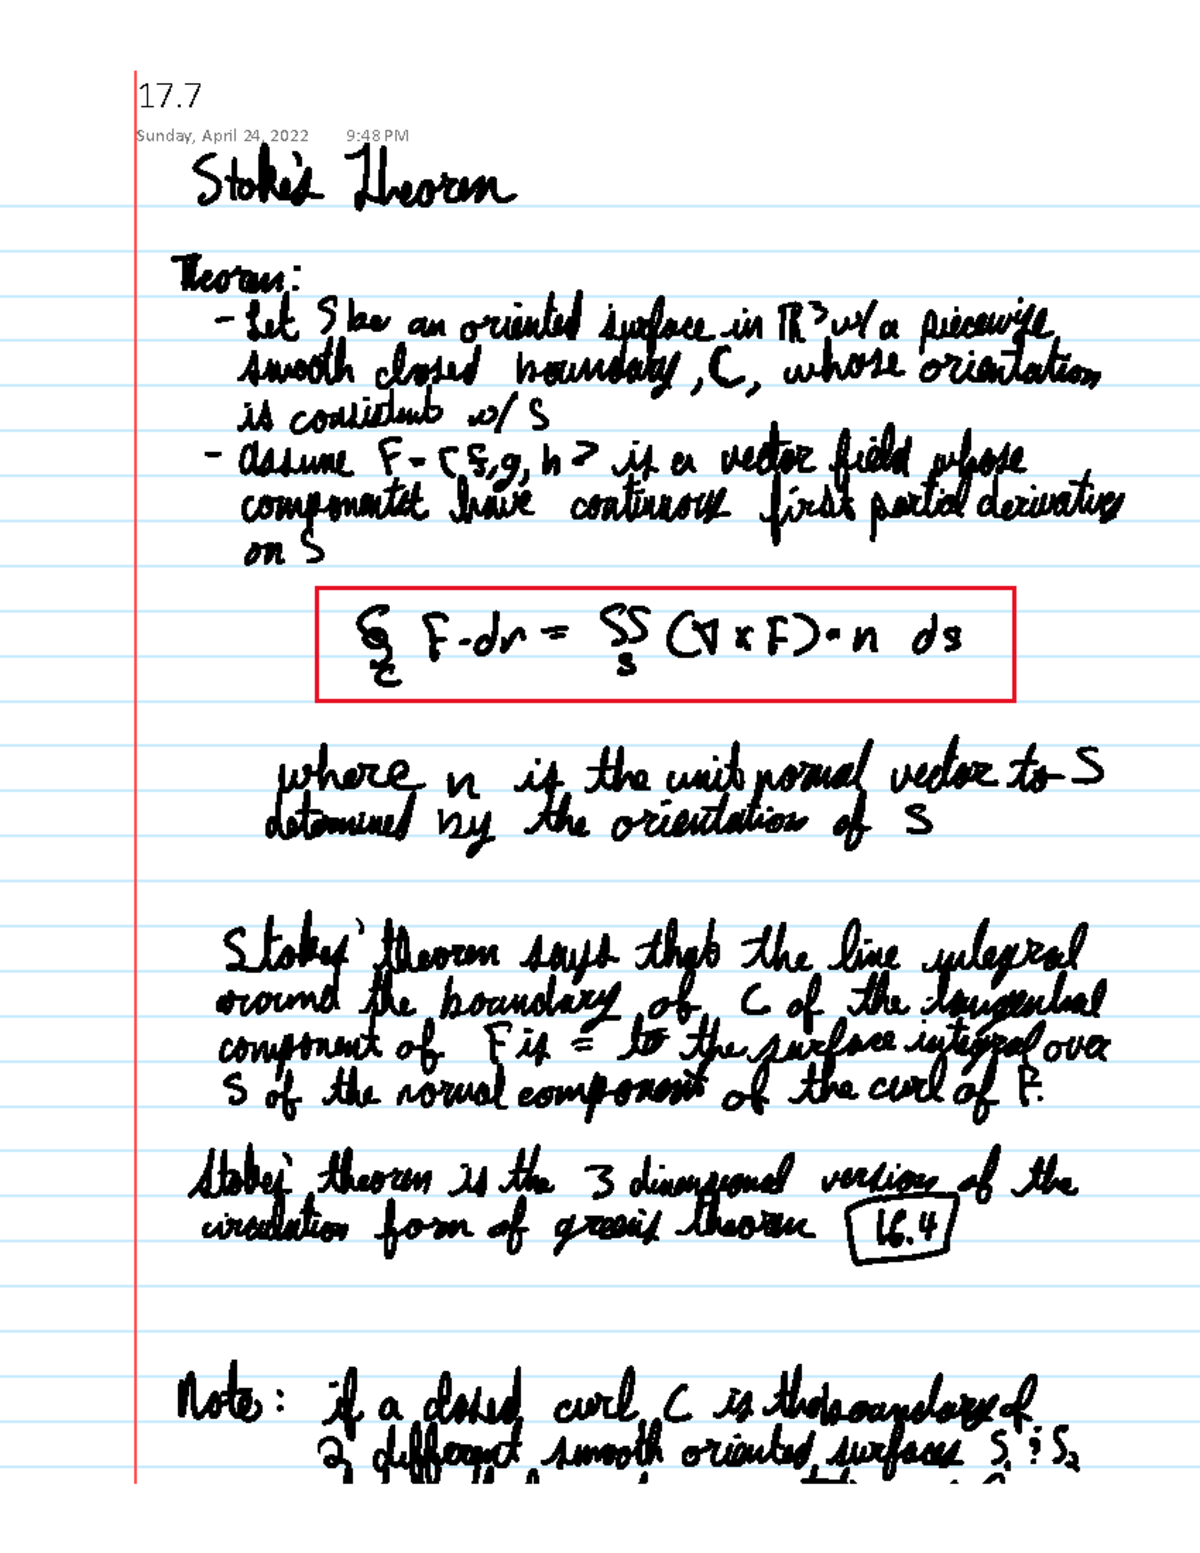 17.7
Sunday, April 24, 2022 9:48 PM
Stoke's Theorem
Theorem:
- Let S be an oriented surface in ℝ³ w/ a piecewise
smooth closed boundary, C, whose orientation
is consistent w/ S
- Assume F = <f, g, h> is a vector field whose
components have continuous first partial derivatives
on S
∮_C F · dr = ∬_S (∇ × F) · n ds
where n is the unit normal vector to S
determined by the orientation of S
Stokes' theorem says that the line integral
around the boundary of C of the tangential
component of F is = to the surface integral over
S of the normal component of the curl of F.
Stokes' theorem is the 3 dimensional version of the
circulation form of green's theorem 16.4
Note: if a closed curl C is the boundary of
2 different smooth oriented surfaces S₁ & S₂